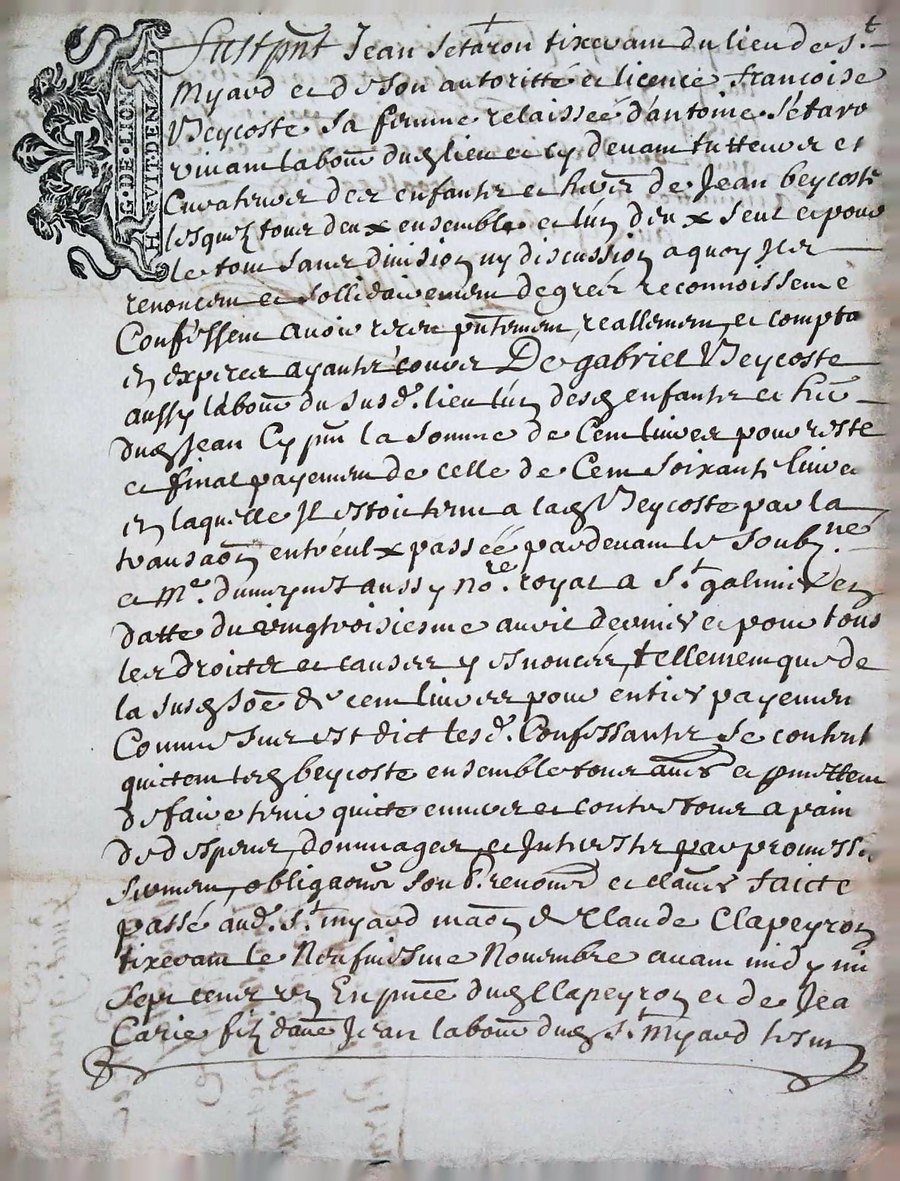 G. DE LION
HVIT DEN D
Fust pnt Jean Setaron tixerant du lieu de St
Myard et de son autoritté et licence francoise
Veycoste sa femme relaissée d'antoine Sétaro
vivant labou dud lieu et cy devant tuttever et
Curatever des enfants et hers de Jean beycoste
lesquelz tous deux ensemble et lun deux seul et pour
le tout sans division ny discussion a quoy Ils
renoncent et sollidairement de grés reconnoissent e
Conféssent avoir receu pntement, reallement, et compta
en expeces ayants cours De gabriel Veycoste
aussy labou du susd. lieu lun desd enfants et hers
dud Jean Cy pnt la somme de Cent livres pour reste
et final payement de celle de Cent Soixante livre
en laquelle Il estoit tenu a lad Veycoste par la
transaon entreulx passée pardevant le soubzné
et Me. aussy Nore. royal a St galmier en
datte du vingtroisiesme avril dernier et pour tous
les droicts et causes y énoncés, tellement que de
la susd soe de cent livres pour entier payement
Comme sus est dict lesd. Confessants se contentent
quictent led beycoste ensemble tous aues et pmettent
de faire tenir quicte envers et contre tous a pain
de despens, dommages, et Interests par promesse
serment, obligaons soub. renoms et clauses faicte
passé aud. St. myard maon de Claude Clapeyron
tixerant le Neufiesme Novembre avant midy mil
sept cens dix En pnce dud Clapeyron et de Jea
Carie filz daue Jean labou dud St. Myard tesm